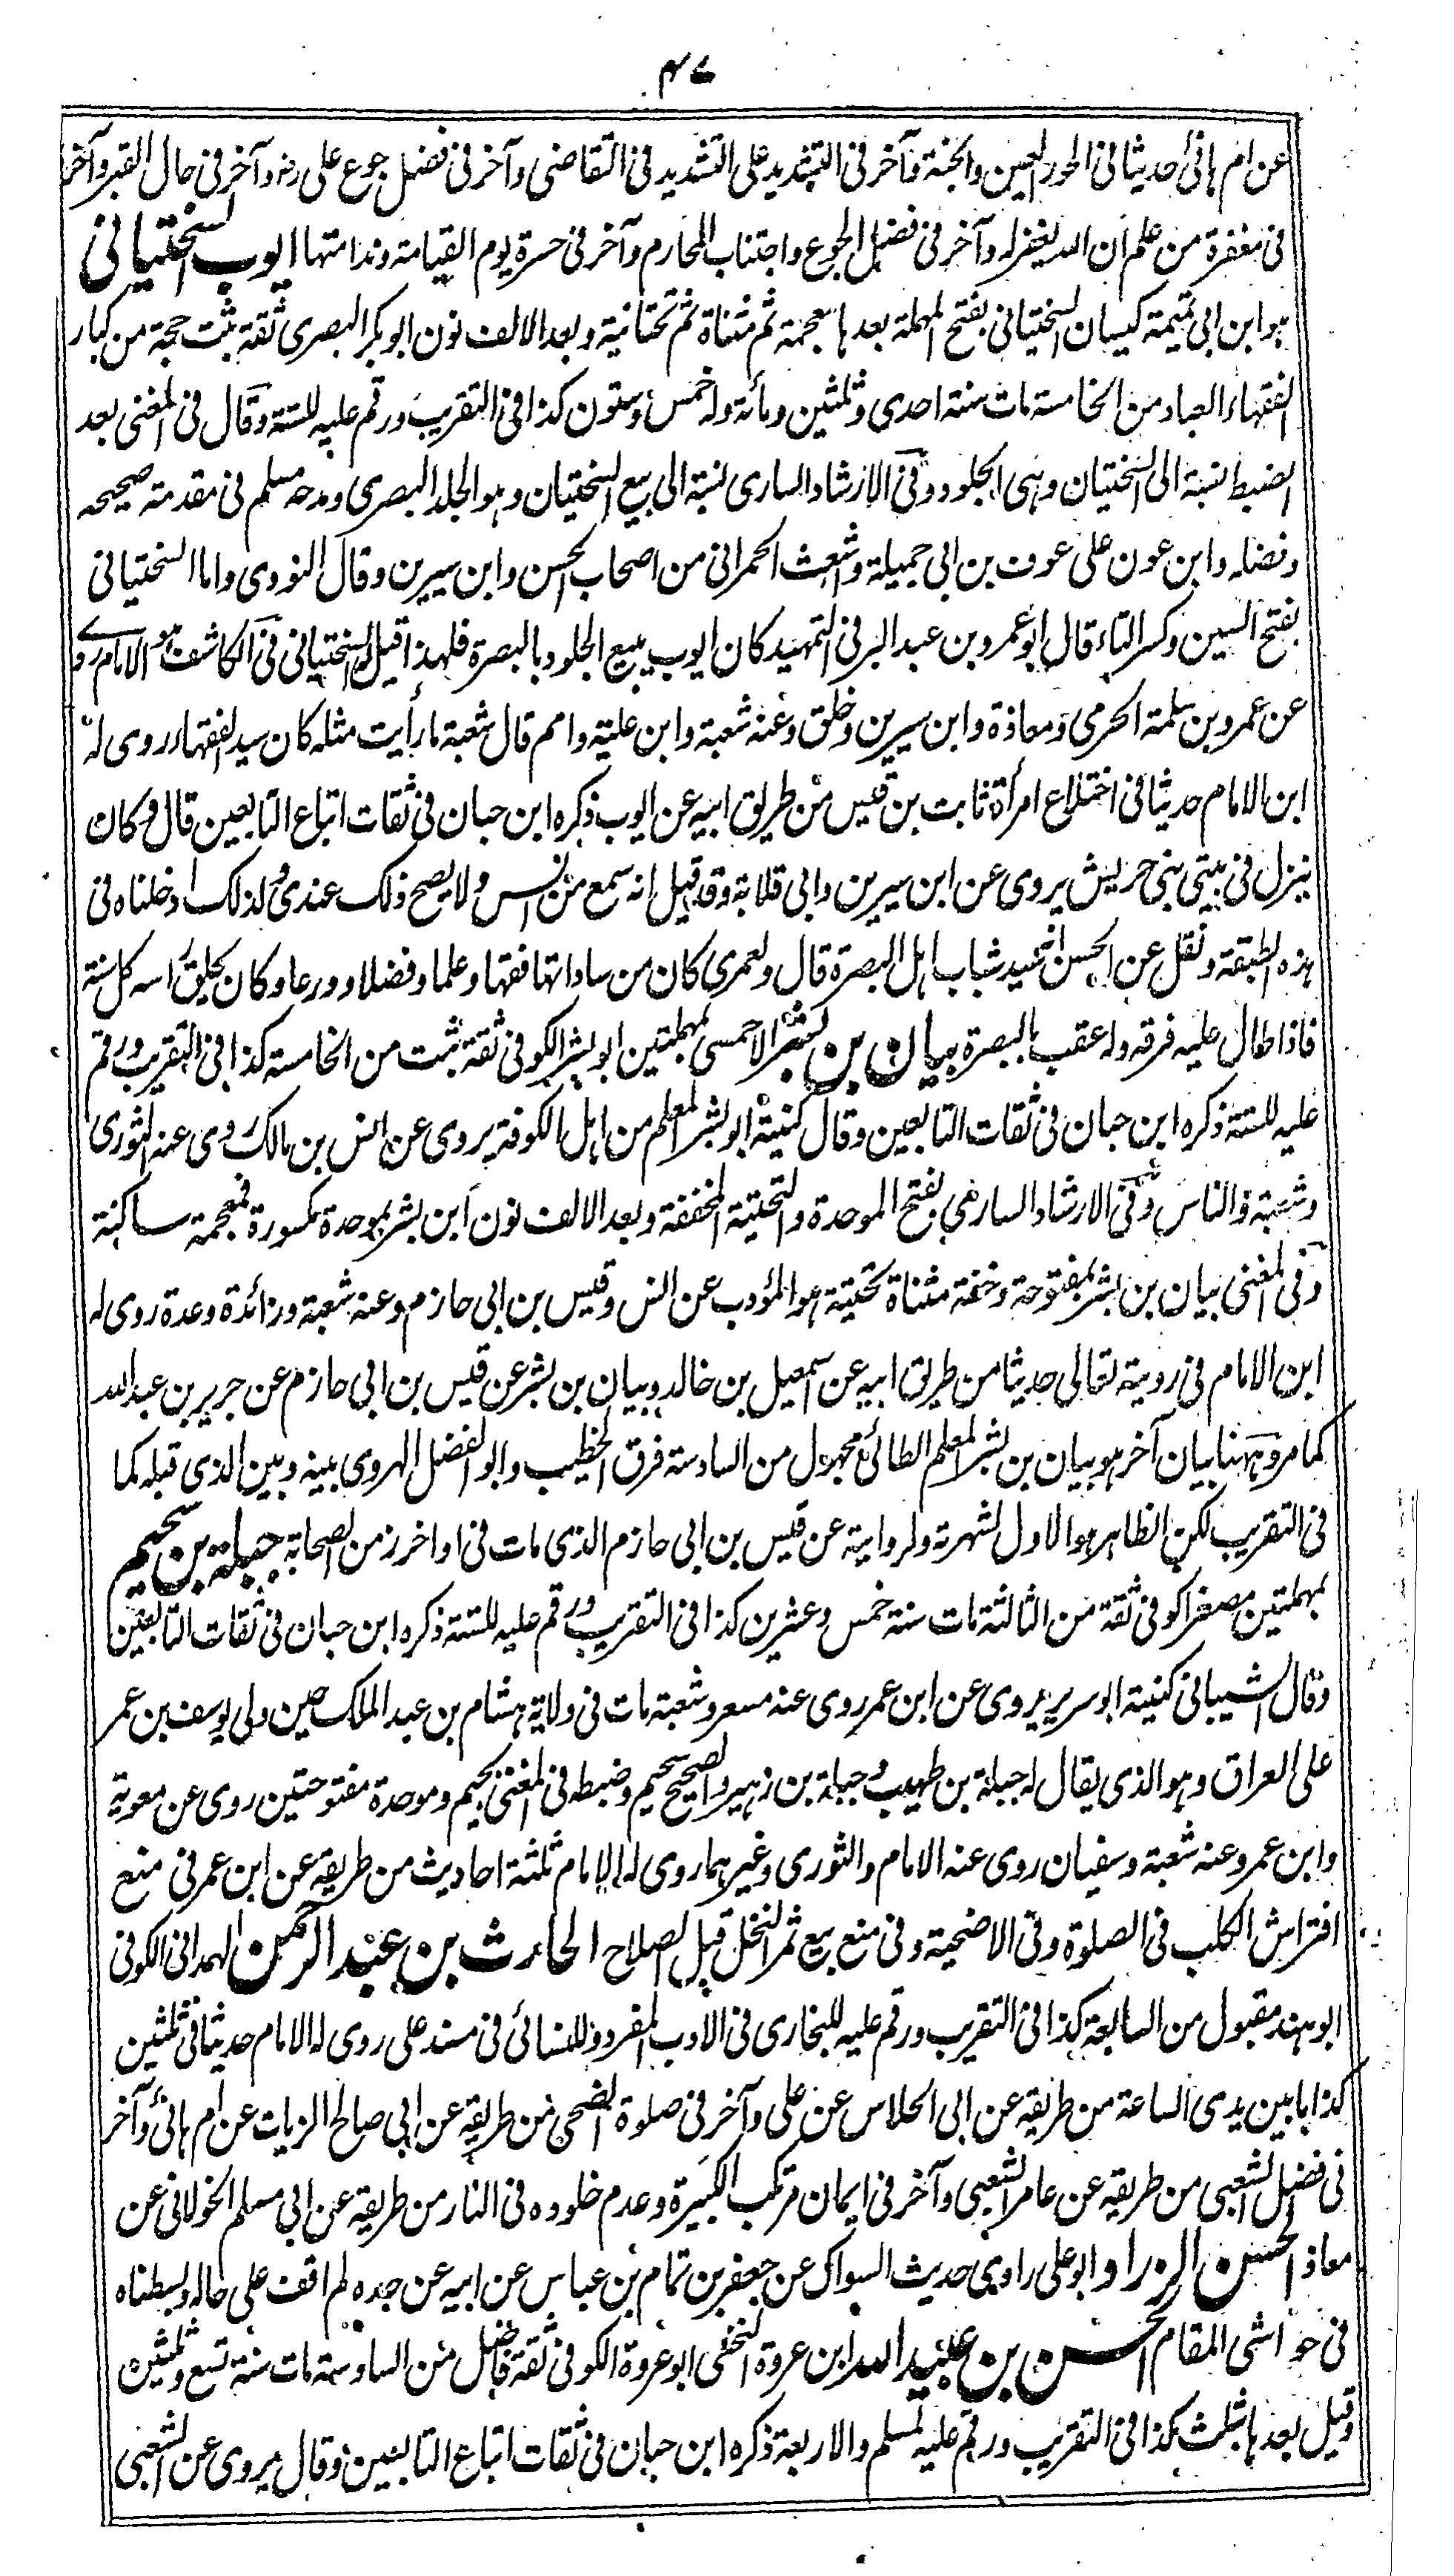 ۴۷
عن ام هانئ حديثا فی الحور العين والجنة وآخر فی التشديد علی التشديد فی التقاضی وآخر فی فضل جوع علی رضه وآخر فی حال القبر وآخر
فی مغفرة من علم ان الله يغفر له وآخر فی فضل الجوع واجتناب المحارم وآخر فی حسرة يوم القيامة وندامتها ايوب السختيانی
هو ابن ابی تميمة كيسان السختيانی بفتح المهملة بعدها معجمة ثم مثناة ثم تحتانية وبعد الالف نون ابو بكر البصری ثقة ثبت حجة من كبار
الفقهاء العباد من الخامسة مات سنة احدی وثلثين ومائة وله خمس وستون كذا فی التقريب ورقم عليه للستة وقال فی المغنی بعد
الضبط نسبة الی السختيان وهی الجلود وفی الارشاد الساری نسبة الی بيع السختيان وهو الجلد البصری ومدحه مسلم فی مقدمة صحيحه
وفضله وابن عون علی عوف بن ابی جميلة واشعث الحمرانی من اصحاب الحسن وابن سيرين وقال النووی واما السختيانی
بفتح السين وكسر التاء قال ابو عمرو بن عبد البر فی التمهيد كان ايوب يبيع الجلود بالبصرة فلهذا قيل له السختيانی فی الكاشف هو الامام روے
عن عمرو بن سلمة الجرمی ومعاذة وابن سيرين وخلق وعنه شعبة وابن علية وامم قال شعبة ما رأيت مثله كان سيد الفقهاء روی له
ابن الامام حديثا فی اختلاع امرأة ثابت بن قيس من طريق ابيه عن ايوب ذكره ابن حبان فی ثقات اتباع التابعين قال وكان
ينزل فی بيتی بنی حريش يروی عن ابن سيرين وابی قلابة وقد قيل انه سمع من انس ولا يصح ذلك عندی ولذلك ادخلناه فی
هذه الطبقة ونقل عن الحسن انه سيد شباب اهل البصرة قال ولعمری كان من ساداتها فقها وعلما وفضلا وورعا وكان يحلق رأسه كل سنة
فاذا طال عليه فرقه وله عقب بالبصرة بيان بن بشر الاحمسی بمهملتين ابو بشر الكوفی ثقة ثبت من الخامسة كذا فی التقريب ورقم
عليه للستة ذكره ابن حبان فی ثقات التابعين وقال كنيته ابو بشر المعلم من اهل الكوفة يروی عن انس بن مالك روی عنه الثوری
وشعبة والناس وفی الارشاد الساری بفتح الموحدة والتحتية المخففة وبعد الالف نون ابن بشر بموحدة مكسورة فمعجمة ساكنة
وفی المغنی بيان بن بشر بمفتوحة وخفة مثناة تحتية هو المؤدب عن انس وقيس بن ابی حازم وعنه شعبة وزائدة وعدة روی له
ابن الامام فی روية تعالی حديثا من طريق ابيه عن اسمعيل بن خالد وبيان بن بشر عن قيس بن ابی حازم عن جرير بن عبد الله
كما مر وههنا بيان آخر هو بيان بن بشر المعلم الطائی مجهول من السادسة فرق الخطيب وابو الفضل الهروی بينه وبين الذی قبله كما
فی التقريب لكن الظاهر هو الاول لشهرته ولروايته عن قيس بن ابی حازم الذی مات فی اواخر زمن الصحابة جبلة بن سحيم
بمهملتين مصغرا كوفی ثقة من الثالثة مات سنة خمس وعشرين كذا فی التقريب ورقم عليه للستة ذكره ابن حبان فی ثقات التابعين
وقال الشيبانی كنيته ابو سريرة يروی عن ابن عمر روی عنه مسعر وشعبة مات فی ولاية هشام بن عبد الملك حين ولی يوسف بن عمر
علی العراق وهو الذی يقال له جبلة بن طهيب وجبلة بن زهير والصحيح سحيم وضبطه فی المغنی بجيم وموحدة مفتوحتين روی عن معوية
وابن عمر وعنه شعبة وسفيان روی عنه الامام والثوری وغيرهما روی له الامام ثلثة احاديث من طريقه عن ابن عمر فی منع
افتراش الكلب فی الصلوة وفی الاضحية وفی منع بيع ثمر النخل قبل الصلاح الحارث بن عبد الرحمن الهمدانی الكوفی
ابو هند مقبول من السابعة كذا فی التقريب ورقم عليه للبخاری فی الادب المفرد وللنسائی فی مسند علی روی له الامام حديثا فی ثلثين
كذابا بين يدی الساعة من طريقه عن ابی الجلاس عن علی وآخر فی صلوة الضحی من طريقه عن ابی صالح الزيات عن ام هانئ وآخر
فی فضل الشعبی من طريقه عن عامر الشعبی وآخر فی ايمان مرتكب الكبيرة وعدم خلوده فی النار من طريقه عن ابی مسلم الخولانی عن
معاذ الحسن الزراد ابو علی راوی حديث السواك عن جعفر بن تمام بن عباس عن ابيه عن جده لم اقف علی حاله وبسطناه
فی حواشی المقام الحسن بن عبيد الله ابن عروة النخعی ابو عروة الكوفی ثقة فاضل من السادسة مات سنة تسع وثلثين
وقيل بعدها بثلث كذا فی التقريب ورقم عليه لمسلم والاربعة ذكره ابن حبان فی ثقات اتباع التابعين وقال يروی عن الشعبی